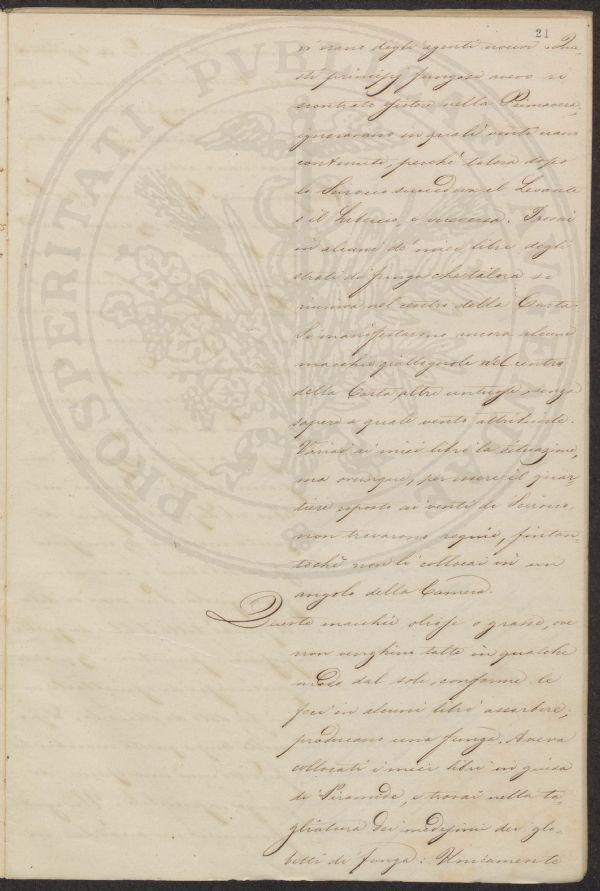 21
vi erano degli agenti nuovi. Que-
sti principj fungosi avevo ri
scontrato esistere nella Primavera,
ignoravano in quali venti erano
contenuti, perchè talora dopo
lo Scirocco succedeva il Levante
e il Libeccio, e viceversa. Trovai
in alcuni de' miei libri degli
strati di fungo che talora si
riuniva nel centro della Carta.
Si manifestarono ancora alcune
macchie giallognole nel centro
della Carta altre untuose, senza
sapere a quale vento attribuirle.
Variai ai miei libri la situazione,
ma ovunque, per essere il quar-
tiere esposto ai venti di Scirocco,
non trovarono requie, fintan-
tochè non li collocai in un
angolo della Camera.
Queste macchie oliose o grasse, ove
non venghino tolte in qualche
modo dal sole, conforme le
feci in alcuni libri assorbire,
producano una funga. Aveva
collocati i miei libri in guisa
di Piramide, e trovai nella ta-
gliatura dei medesimi dei glo-
betti di funga: Unicamente
PROSPERITATI PUBLICAE AUGENDAE